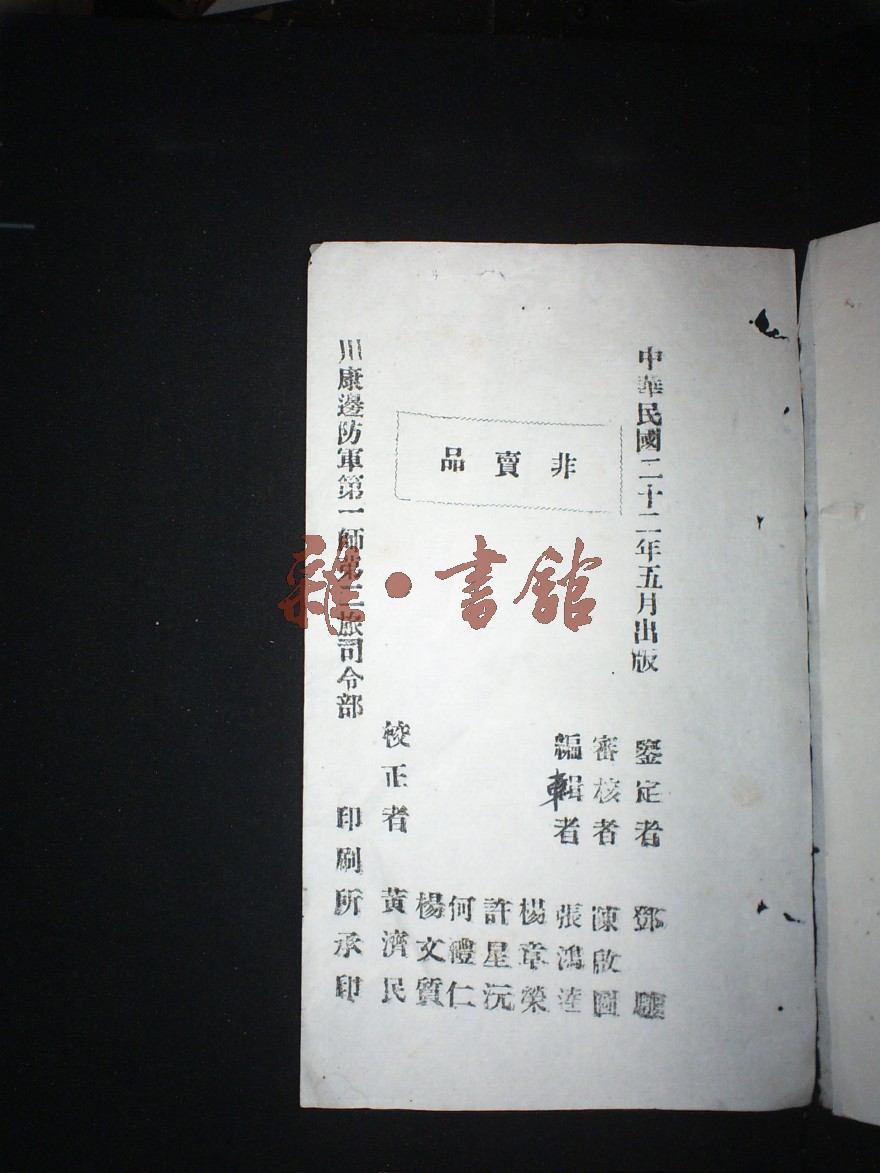 中華民國二十二年五月出版
鑒定者 鄧
審核者 陳啟圖
編輯者 張鴻逵
楊章榮
許星沅
何禮仁
楊文質
校正者 黃濟民
非賣品
川康邊防軍第一師第二旅司令部 印刷所承印
雜·書館